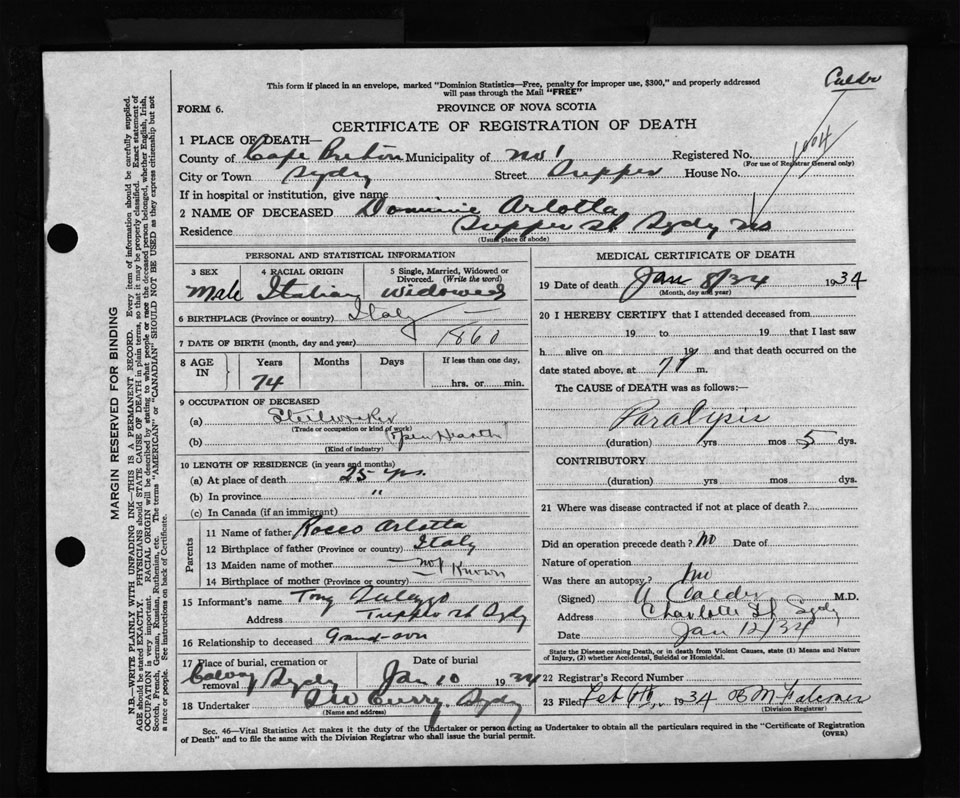 Calder
This form if placed in an envelope, marked "Dominion Statistics—Free, penalty for improper use, $300," and properly addressed
will pass through the Mail "FREE"
FORM 6.
PROVINCE OF NOVA SCOTIA
CERTIFICATE OF REGISTRATION OF DEATH
1 PLACE OF DEATH—
County of Cape Breton Municipality of No 1 Registered No.
(For use of Registrar General only)
City or Town Sydy Street Tupper House No.
If in hospital or institution, give name
2 NAME OF DECEASED Dominic Arlotta
Residence Tupper St Sydy NS
(Usual place of abode)
PERSONAL AND STATISTICAL INFORMATION
3 SEX 4 RACIAL ORIGIN 5 Single, Married, Widowed or Divorced. (Write the word)
Male Italian Widowed
6 BIRTHPLACE (Province or country) Italy
7 DATE OF BIRTH (month, day and year) 1860
8 AGE IN Years Months Days If less than one day,
74 hrs. or min.
9 OCCUPATION OF DECEASED
(a) Steelworker
(Trade or occupation or kind of work)
(b) Open Hearth
(Kind of industry)
10 LENGTH OF RESIDENCE (in years and months)
(a) At place of death 25 yrs.
(b) In province "
(c) In Canada (if an immigrant)
Parents
11 Name of father Rocco Arlotta
12 Birthplace of father (Province or country) Italy
13 Maiden name of mother not
14 Birthplace of mother (Province or country) Known
15 Informant's name Tony
Address Tupper St Sydy
16 Relationship to deceased Grand-son
17 Place of burial, cremation or removal Date of burial
Calvary Sydy Jan 10 1934
18 Undertaker Curry Sydy
(Name and address)
MEDICAL CERTIFICATE OF DEATH
19 Date of death Jan 8/34 1934
(Month, day and year)
20 I HEREBY CERTIFY that I attended deceased from
19 to 19 that I last saw
h alive on 19 and that death occurred on the
date stated above, at m.
The CAUSE of DEATH was as follows:—
Paralysis
(duration) yrs mos 5 dys.
CONTRIBUTORY
(duration) yrs mos dys.
21 Where was disease contracted if not at place of death?
Did an operation precede death? No Date of
Nature of operation
Was there an autopsy? No
(Signed) A Calder M.D.
Address Charlotte St Sydy
Date Jan 12/34
State the Disease causing Death, or in death from Violent Causes, state (1) Means and
Nature of Injury, (2) whether Accidental, Suicidal or Homicidal.
22 Registrar's Record Number
23 Filed Feb 6th, 1934
(Division Registrar)
Sec. 46—Vital Statistics Act makes it the duty of the Undertaker or person acting as Undertaker to obtain all the particulars required in the "Certificate of Registration
of Death" and to file the same with the Division Registrar who shall issue the burial permit.
(OVER)
MARGIN RESERVED FOR BINDING
N.B.—WRITE PLAINLY WITH UNFADING INK—THIS IS A PERMANENT RECORD. Every item of information should be carefully supplied.
AGE should be stated EXACTLY. PHYSICIANS should STATE CAUSE OF DEATH in plain terms, so that it may be properly classified. Exact statement of
OCCUPATION is very important. RACIAL ORIGIN will be described by stating to what people or race the deceased person belonged, whether English, Irish,
Scotch, French, German, Russian, Ruthenian, etc. The terms "AMERICAN" or "CANADIAN" SHOULD NOT BE USED as they express citizenship but not
a race or people. See instructions on back of Certificate.